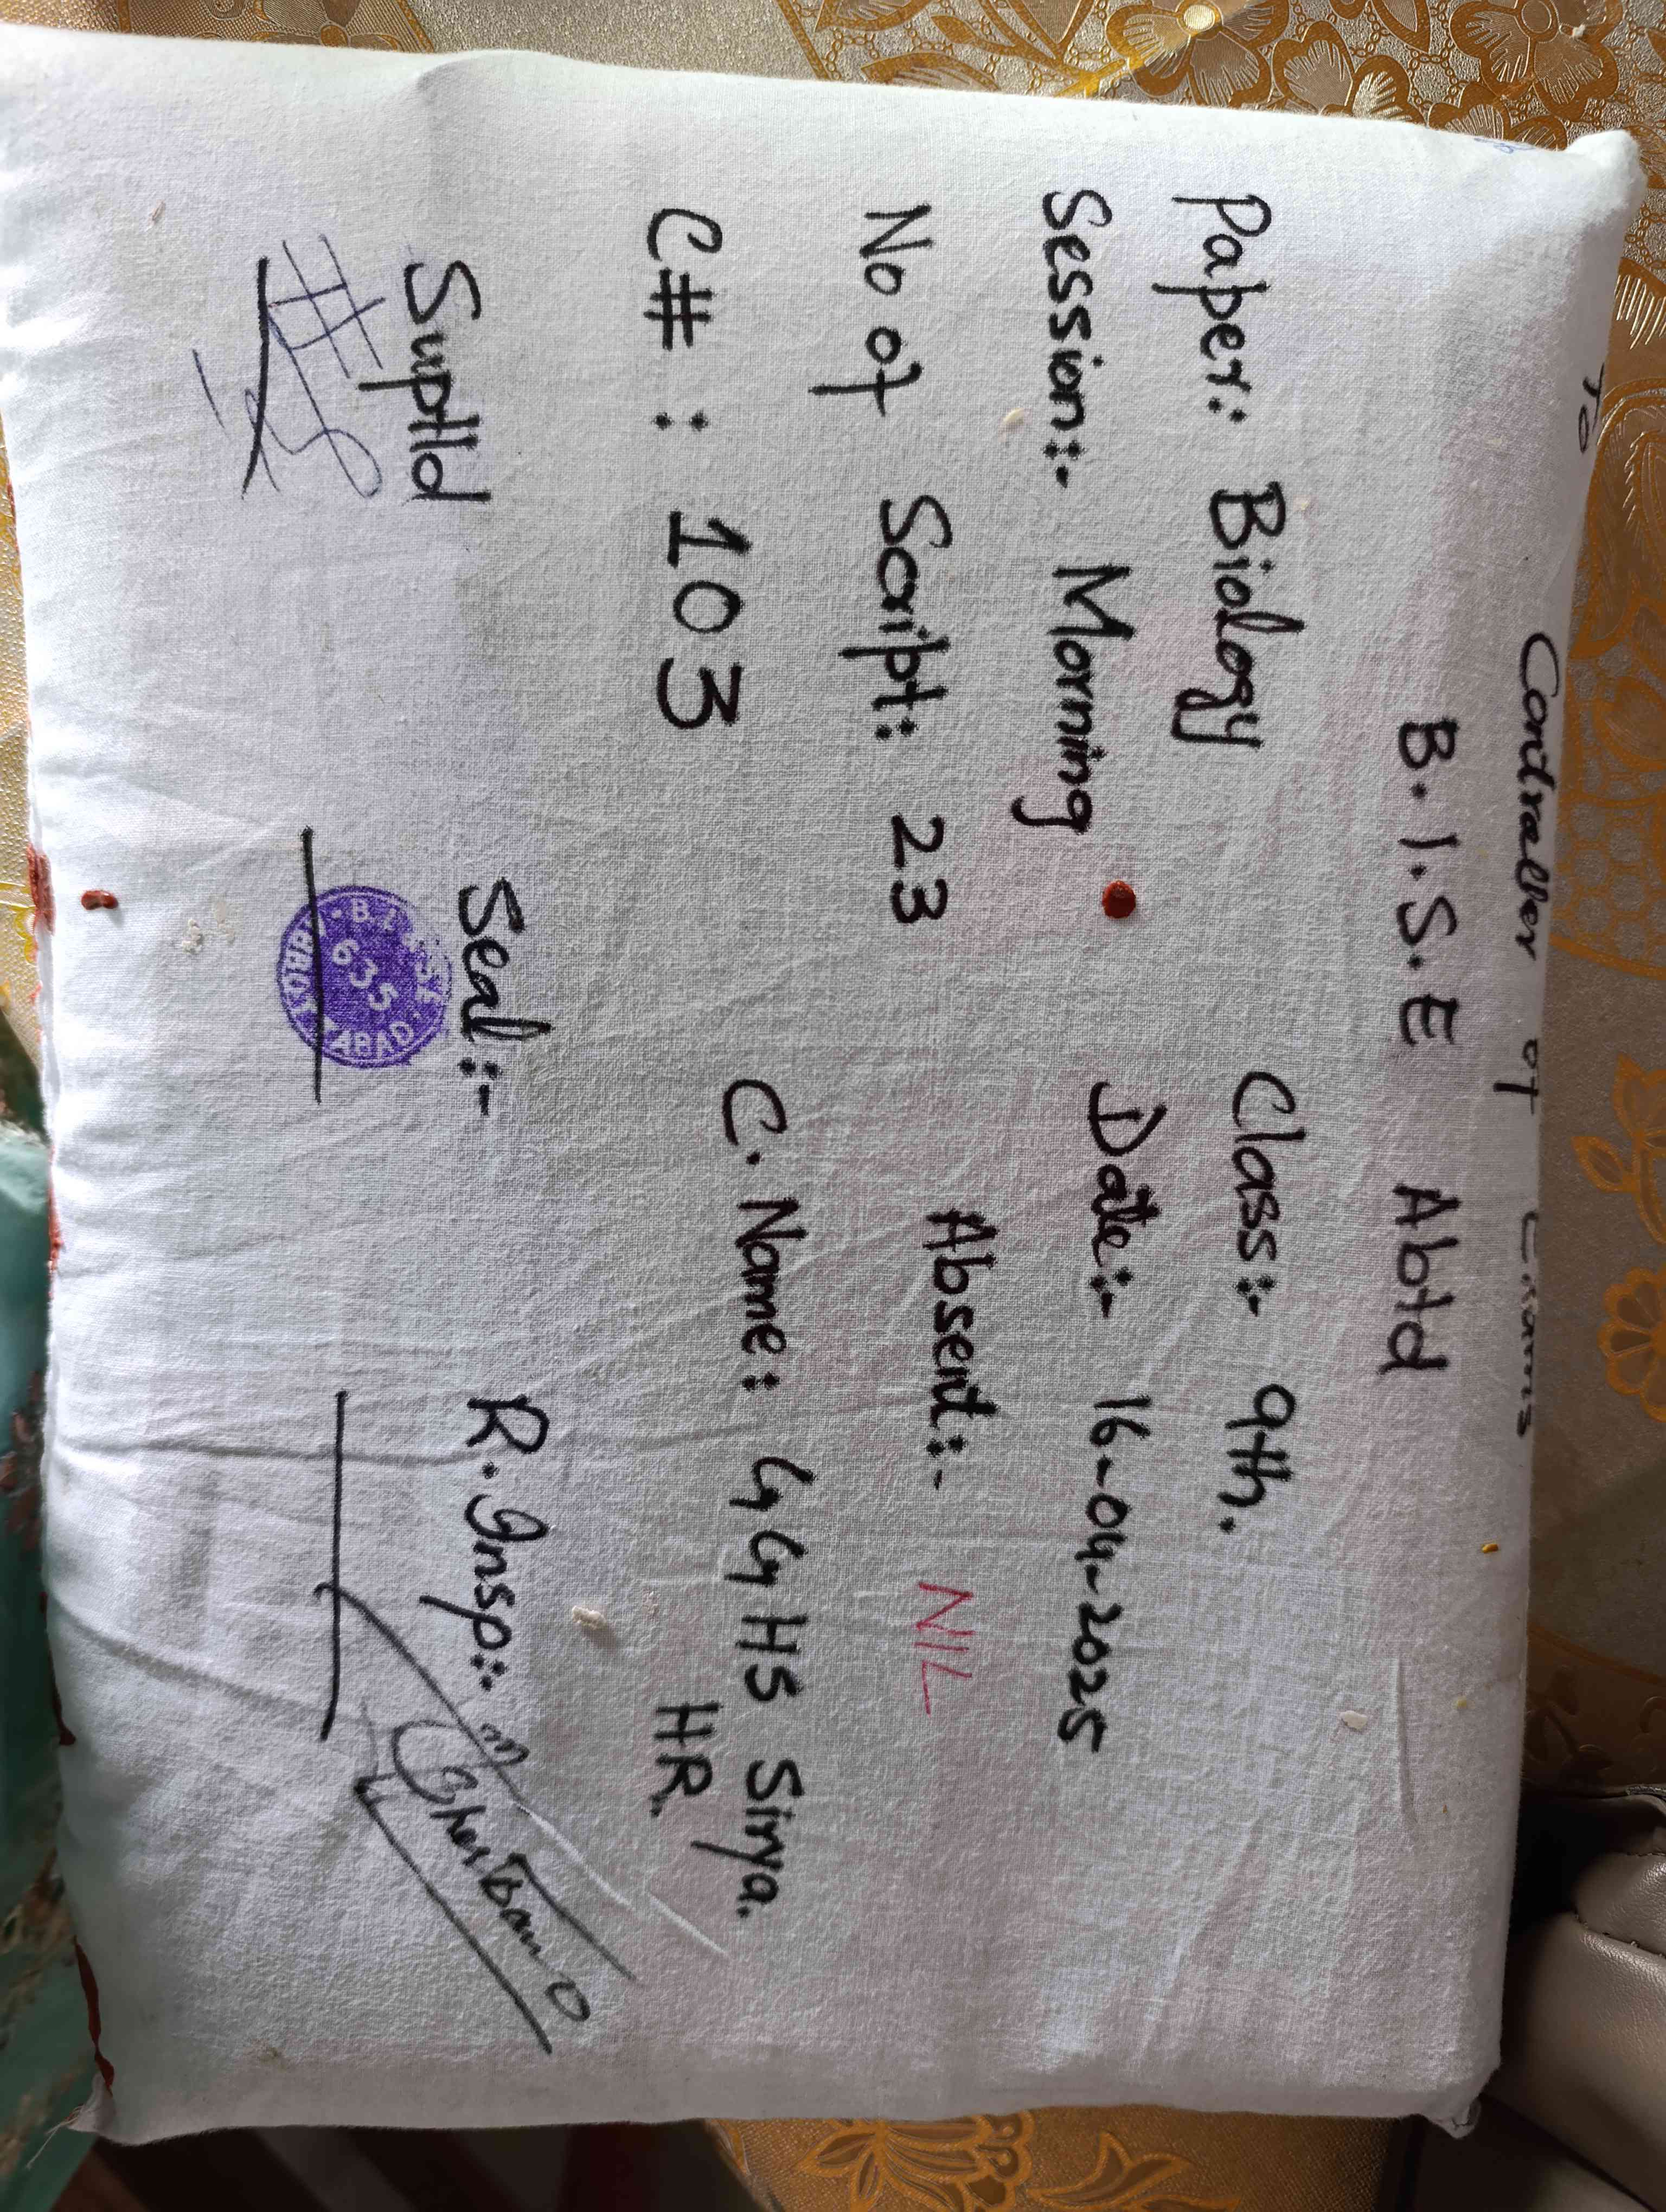 To
Controller of Exams
B.I.S.E Abtd
Paper: Biology Class:- 9th.
Session:- Morning Date:- 16-04-2025
No of Script: 23 Absent:- NIL
C# : 103 C. Name: GGHS Sirya.
HR.
Suptld Seal:- R. Insp:-
B.I.&S.E.
635
ABAD